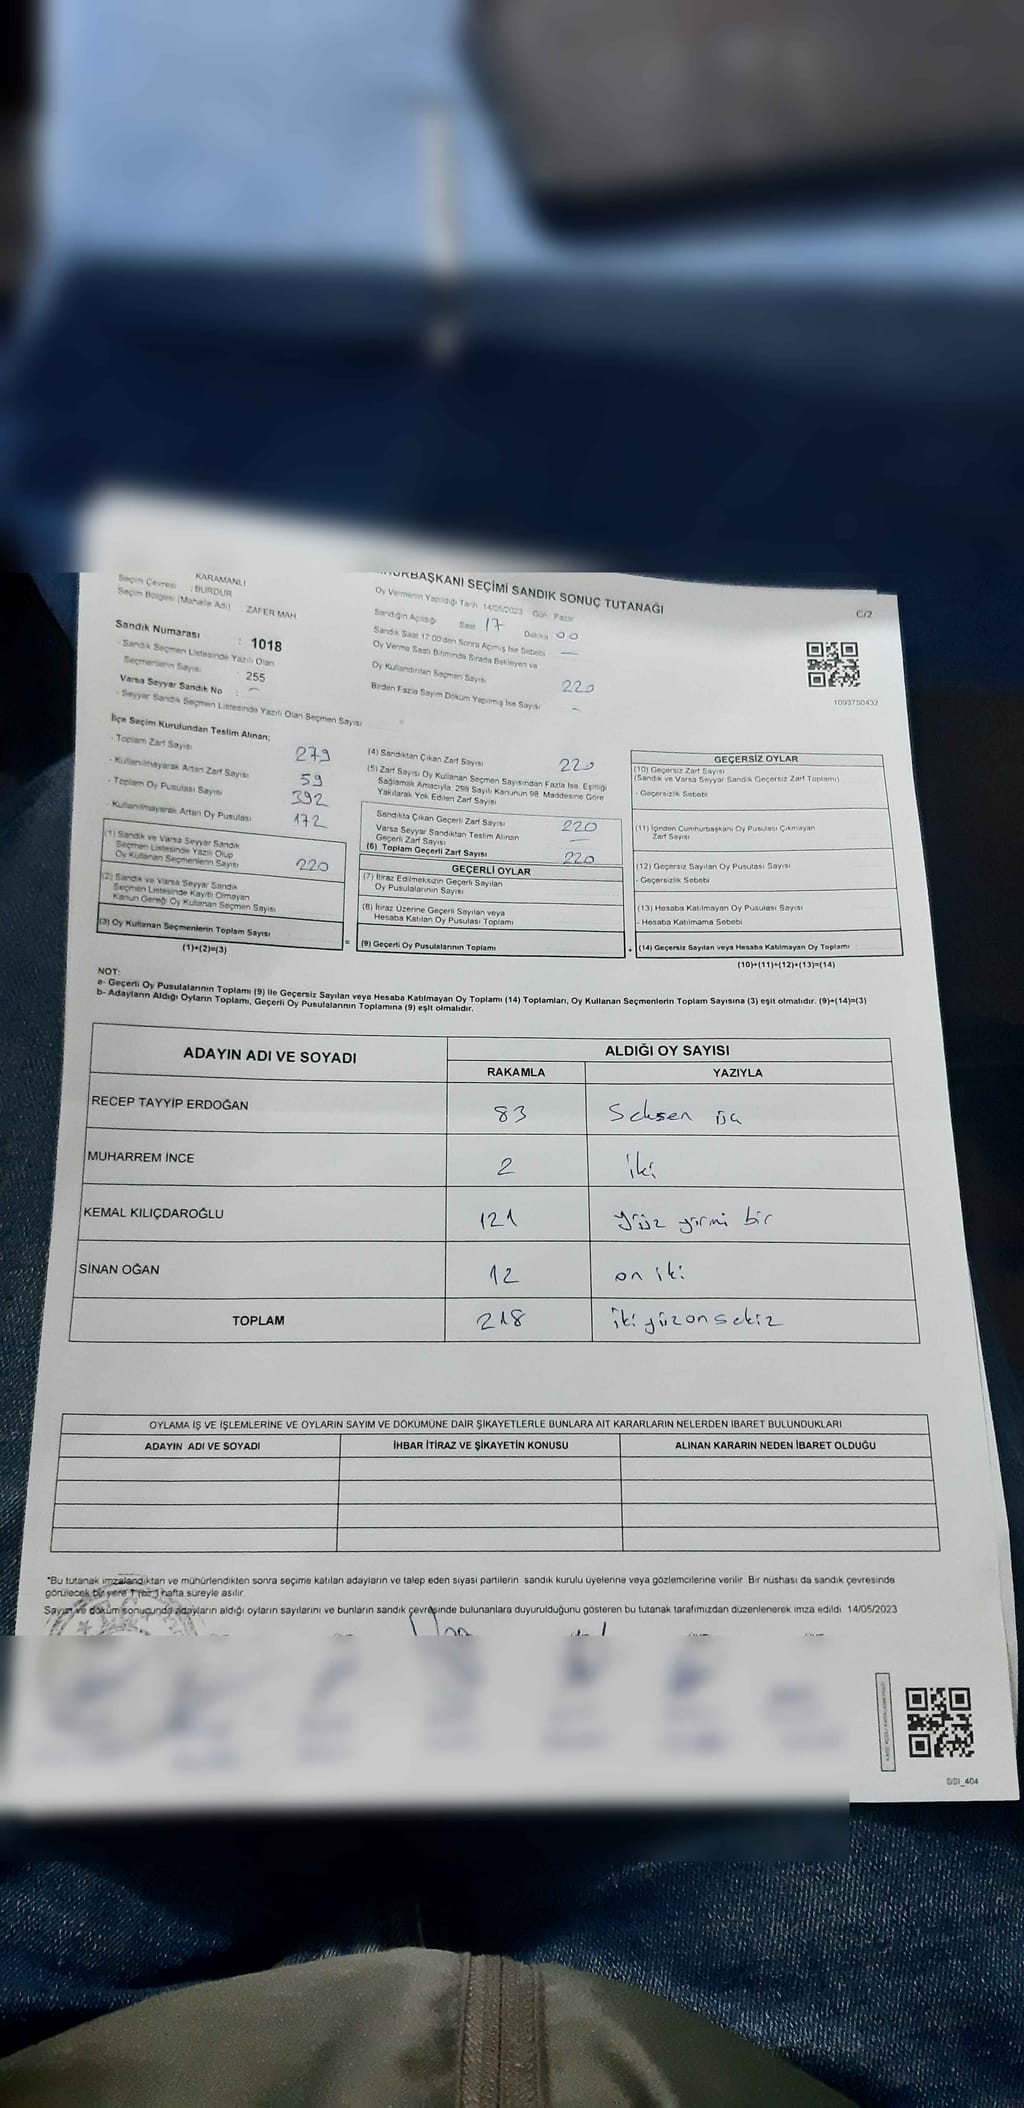 KARAMANLI
CUMHURBAŞKANI SEÇİMİ SANDIK SONUÇ TUTANAĞI
C/2
Seçim Çevresi : BURDUR
Seçim Bölgesi (Mahalle Adı) ZAFER MAH
Oy Vermenin Yapıldığı Tarih 14/05/2023 Gün Pazar
Sandığın Açıldığı Saat 17 Dakika 00
Sandık Saat 17:00'den Sonra Açmış İse Sebebi —
Oy Verme Saati Bitiminde Sırada Bekleyen ve
Oy Kullandırılan Seçmen Sayısı 220
Birden Fazla Sayım Döküm Yapılmış İse Sayısı -
1093750432
Sandık Numarası : 1018
- Sandık Seçmen Listesinde Yazılı Olan
Seçmenlerin Sayısı : 255
Varsa Seyyar Sandık No : -
- Seyyar Sandık Seçmen Listesinde Yazılı Olan Seçmen Sayısı
İlçe Seçim Kurulundan Teslim Alınan;
- Toplam Zarf Sayısı 279
- Kullanılmayarak Artan Zarf Sayısı 59
- Toplam Oy Pusulası Sayısı 392
- Kullanılmayarak Artan Oy Pusulası 172
(1) Sandık ve Varsa Seyyar Sandık
Seçmen Listesinde Yazılı Olup
Oy Kullanan Seçmenlerin Sayısı 220
(2) Sandık ve Varsa Seyyar Sandık
Seçmen Listesinde Kayıtlı Olmayan
Kanun Gereği Oy Kullanan Seçmen Sayısı
(3) Oy Kullanan Seçmenlerin Toplam Sayısı
(1)+(2)=(3)
=
(4) Sandıktan Çıkan Zarf Sayısı 220
(5) Zarf Sayısı Oy Kullanan Seçmen Sayısından Fazla İse, Eşitliği
Sağlamak Amacıyla, 298 Sayılı Kanunun 98. Maddesine Göre
Yakılarak Yok Edilen Zarf Sayısı —
Sandıkta Çıkan Geçerli Zarf Sayısı 220
Varsa Seyyar Sandıktan Teslim Alınan
Geçerli Zarf Sayısı —
(6) Toplam Geçerli Zarf Sayısı 220
GEÇERLİ OYLAR
(7) İtiraz Edilmeksizin Geçerli Sayılan
Oy Pusulalarının Sayısı
(8) İtiraz Üzerine Geçerli Sayılan veya
Hesaba Katılan Oy Pusulası Toplamı
(9) Geçerli Oy Pusulalarının Toplamı
+
GEÇERSİZ OYLAR
(10) Geçersiz Zarf Sayısı
(Sandık ve Varsa Seyyar Sandık Geçersiz Zarf Toplamı)
- Geçersizlik Sebebi
(11) İçinden Cumhurbaşkanı Oy Pusulası Çıkmayan
Zarf Sayısı
(12) Geçersiz Sayılan Oy Pusulası Sayısı
- Geçersizlik Sebebi
(13) Hesaba Katılmayan Oy Pusulası Sayısı
- Hesaba Katılmama Sebebi
(14) Geçersiz Sayılan veya Hesaba Katılmayan Oy Toplamı
(10)+(11)+(12)+(13)=(14)
NOT:
a- Geçerli Oy Pusulalarının Toplamı (9) ile Geçersiz Sayılan veya Hesaba Katılmayan Oy Toplamı (14) Toplamları, Oy Kullanan Seçmenlerin Toplam Sayısına (3) eşit olmalıdır. (9)+(14)=(3)
b- Adayların Aldığı Oyların Toplamı, Geçerli Oy Pusulalarının Toplamına (9) eşit olmalıdır.
ADAYIN ADI VE SOYADI ALDIĞI OY SAYISI
RAKAMLA YAZIYLA
RECEP TAYYİP ERDOĞAN 83 Seksen üç
MUHARREM İNCE 2 iki
KEMAL KILIÇDAROĞLU 121 yüz yirmi bir
SİNAN OĞAN 12 on iki
TOPLAM 218 iki yüz on sekiz
OYLAMA İŞ VE İŞLEMLERİNE VE OYLARIN SAYIM VE DÖKÜMÜNE DAİR ŞİKAYETLERLE BUNLARA AİT KARARLARIN NELERDEN İBARET BULUNDUKLARI
ADAYIN ADI VE SOYADI İHBAR İTİRAZ VE ŞİKAYETİN KONUSU ALINAN KARARIN NEDEN İBARET OLDUĞU
*Bu tutanak imzalandıktan ve mühürlendikten sonra seçime katılan adayların ve talep eden siyasi partilerin sandık kurulu üyelerine veya gözlemcilerine verilir. Bir nüshası da sandık çevresinde
görülecek bir yere 1 (bir) hafta süreyle asılır.
Sayım ve döküm sonucunda adayların aldığı oyların sayılarını ve bunların sandık çevresinde bulunanlara duyurulduğunu gösteren bu tutanak tarafımızdan düzenlenerek imza edildi. 14/05/2023
SSI_404